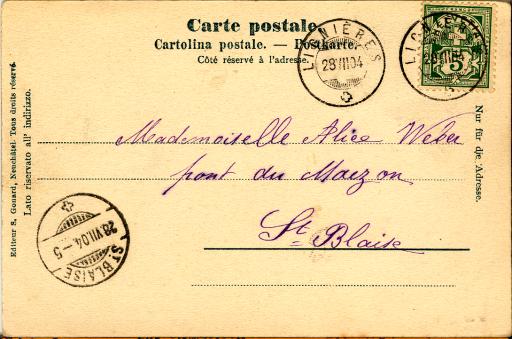 Carte postale.
Cartolina postale. — Postkarte.
Côté réservé à l'adresse.
LIGNIÈRES
28 VII 04
LIGNIÈRES
28 VII 04
5
Mademoiselle Alice Weber
pont du Maizon
St Blaise
Nur für die Adresse.
Editeur S. Gouard, Neuchâtel. Tous droits réservé.
Lato riservato all' indirizzo.
28.VII.04-5
ST BLAISE